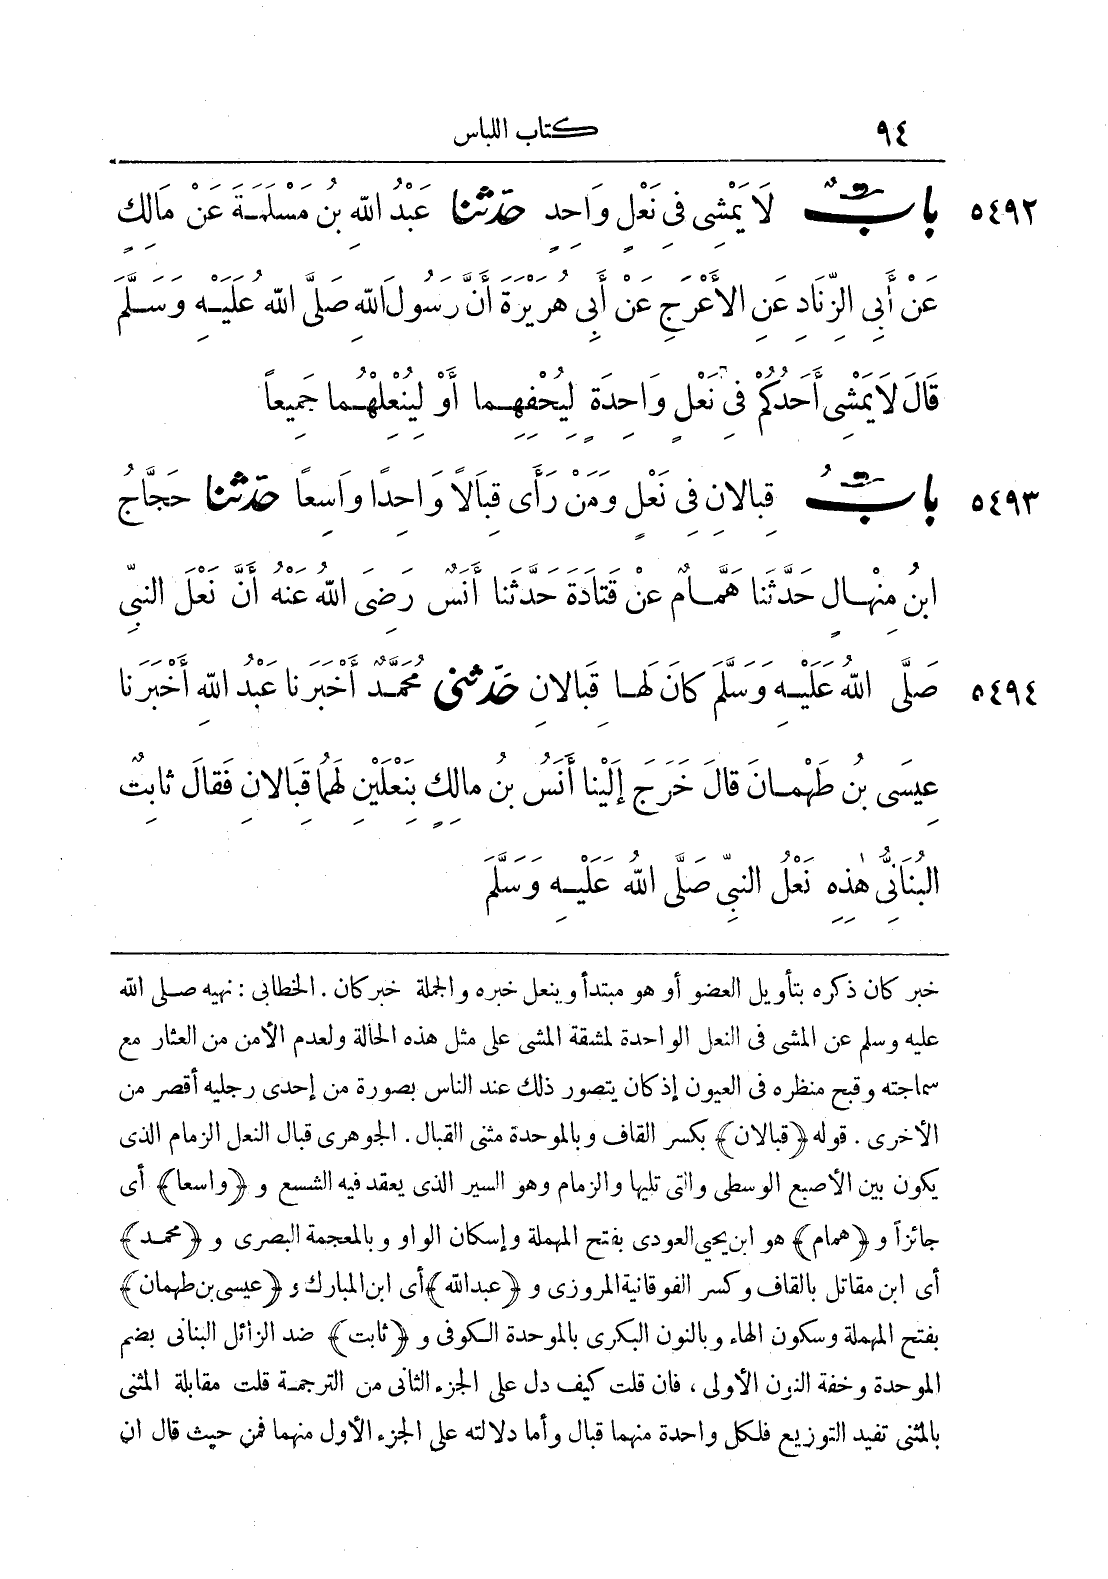 ٩٤ كتاب اللباس
٥٤٩٢ بابٌ لَا يَمْشِى فى نَعْلٍ وَاحِدٍ حَدَّثَنَا عَبْدُ اللهِ بنُ مَسْلَمَةَ عَنْ مَالِكٍ
عَنْ أَبِى الزِّنَادِ عَنِ الأَعْرَجِ عَنْ أَبِى هُرَيْرَةَ أَنَّ رَسُولَ اللهِ صَلَّى اللهُ عَلَيْهِ وَسَلَّمَ
قَالَ لَا يَمْشِى أَحَدُكُمْ فِى نَعْلٍ وَاحِدَةٍ لِيُحْفِهِمَا أَوْ لِيُنْعِلْهُمَا جَمِيعاً
٥٤٩٣ بابُ قِبالانِ فِى نَعْلٍ وَمَنْ رَأَى قِبَالاً وَاحِدًا وَاسِعاً حَدَّثَنَا حَجَّاجُ
ابنُ مِنْهالٍ حَدَّثَنا هَمَّامٌ عنْ قَتادَةَ حَدَّثَنا أَنَسٌ رَضِىَ اللهُ عنْهُ أَنَّ نَعْلَ النبىِّ
٥٤٩٤ صَلَّى اللهُ عَلَيْهِ وَسَلَّمَ كانَ لَها قِبالانِ حَدَّثَنى مُحَمَّدٌ أَخْبَرَنا عَبْدُ اللهِ أَخْبَرَنا
عِيسَى بنُ طَهْمانَ قالَ خَرَجَ إِلَيْنا أَنَسُ بنُ مالِكٍ بِنَعْلَيْنِ لَهُما قِبَالانِ فَقالَ ثابِتٌ
البُنَانِىُّ هٰذِهِ نَعْلُ النبىِّ صَلَّى اللهُ عَلَيْهِ وَسَلَّمَ
خبر كان ذكره بتأويل العضو أو هو مبتدأ وينعل خبره والجملة خبر كان . الخطابى : نهيه صلى الله
عليه وسلم عن المشى فى النعل الواحدة لمشقة المشى على مثل هذه الحالة ولعدم الأمن من العثار مع
سماجته وقبح منظره فى العيون إذ كان يتصور ذلك عند الناس بصورة من إحدى رجليه أقصر من
الأخرى . قوله ﴿قبالان﴾ بكسر القاف وبالموحدة مثنى القبال . الجوهرى قبال النعل الزمام الذى
يكون بين الأصبع الوسطى والتى تليها والزمام وهو السير الذى يعقد فيه الشسع و ﴿واسعا﴾ أى
جائزاً و ﴿همام﴾ هو ابن يحيى العودى بفتح المهملة وإسكان الواو وبالمعجمة البصرى و ﴿محمد﴾
أى ابن مقاتل بالقاف وكسر الفوقانية المروزى و ﴿عبد الله﴾ أى ابن المبارك و ﴿عيسى بن طهمان﴾
بفتح المهملة وسكون الهاء وبالنون البكرى بالموحدة الكوفى و ﴿ثابت﴾ ضد الزائل البنانى بضم
الموحدة وخفة النون الأولى ، فان قلت كيف دل على الجزء الثانى من الترجمة قلت مقابلة المثنى
بالمثنى تفيد التوزيع فلكل واحدة منهما قبال وأما دلالته على الجزء الأول منهما فمن حيث قال ان